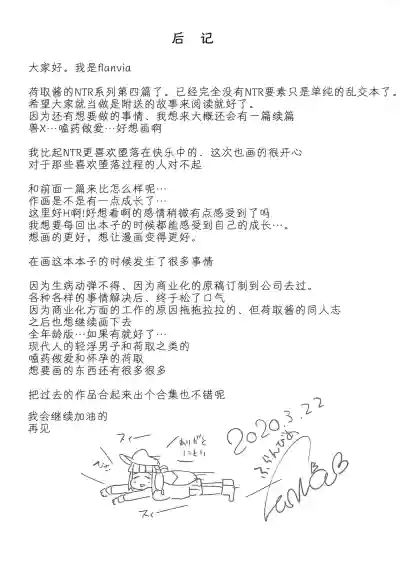 后 记
大家好。我是flanvia
荷取酱的NTR系列第四篇了。已经完全没有NTR要素只是单纯的乱交本了。
希望大家就当做是附送的故事来阅读就好了。
因为还有想要做的事情、我想来大概还会有一篇续篇
兽X…嗑药做爱…好想画啊
我比起NTR更喜欢堕落在快乐中的、这次也画的很开心
对于那些喜欢堕落过程的人对不起
和前面一篇来比怎么样呢…
作画是不是有一点成长了…
这里好H啊!好想看啊的感情稍微有点感受到了吗
我想要每回出本子的时候都能感受到自己的成长…。
想画的更好，想让漫画变得更好。
在画这本本子的时候发生了很多事情
因为生病动弹不得、因为商业化的原稿订制到公司去过。
各种各样的事情解决后、终于松了口气
因为商业化方面的工作的原因拖拖拉拉的、但荷取酱的同人志
之后也想继续画下去
全年龄版…如果有就好了…
现代人的轻浮男子和荷取之类的
嗑药做爱和怀孕的荷取
想要画的东西还有很多很多
把过去的作品合起来出个合集也不错呢
我会继续加油的
再见
2020.3.22
スィー
ありがと
にとり
ふらんびあ
スィー